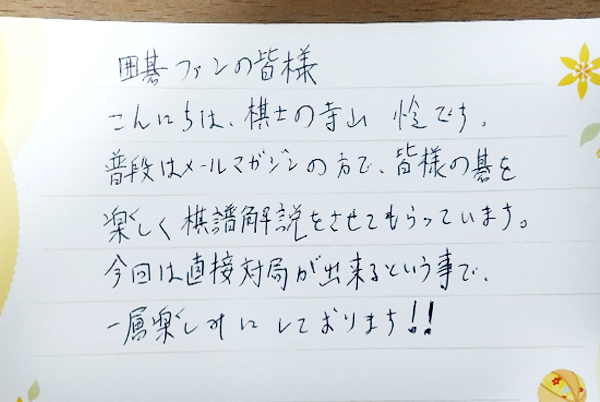 囲碁ファンの皆様
こんにちは、棋士の寺山 怜です。
普段はメールマガジンの方で、皆様の碁を
楽しく棋譜解説をさせてもらっています。
今回は直接対局が出来るという事で、
一層楽しみにしております!!